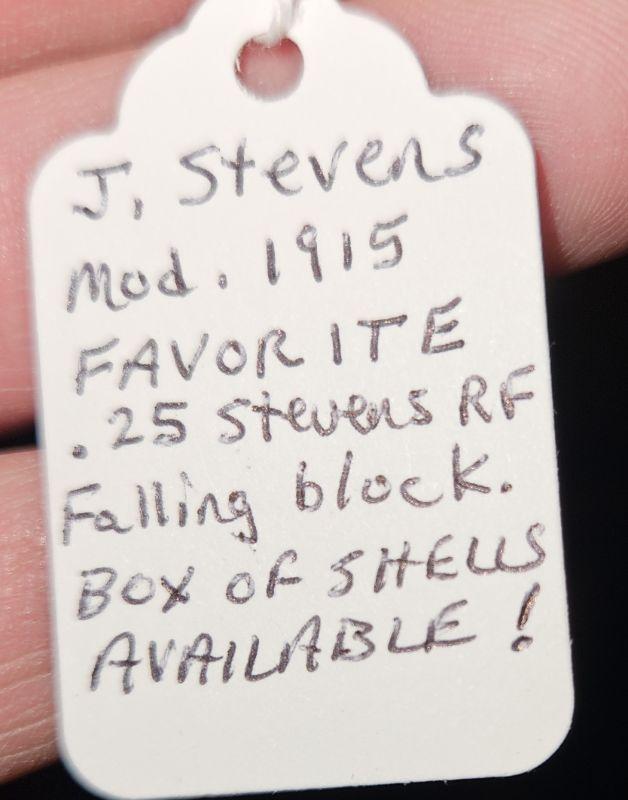 J. Stevens
Mod. 1915
FAVORITE
.25 Stevens RF
Falling block.
BOX OF SHELLS
AVAILABLE!